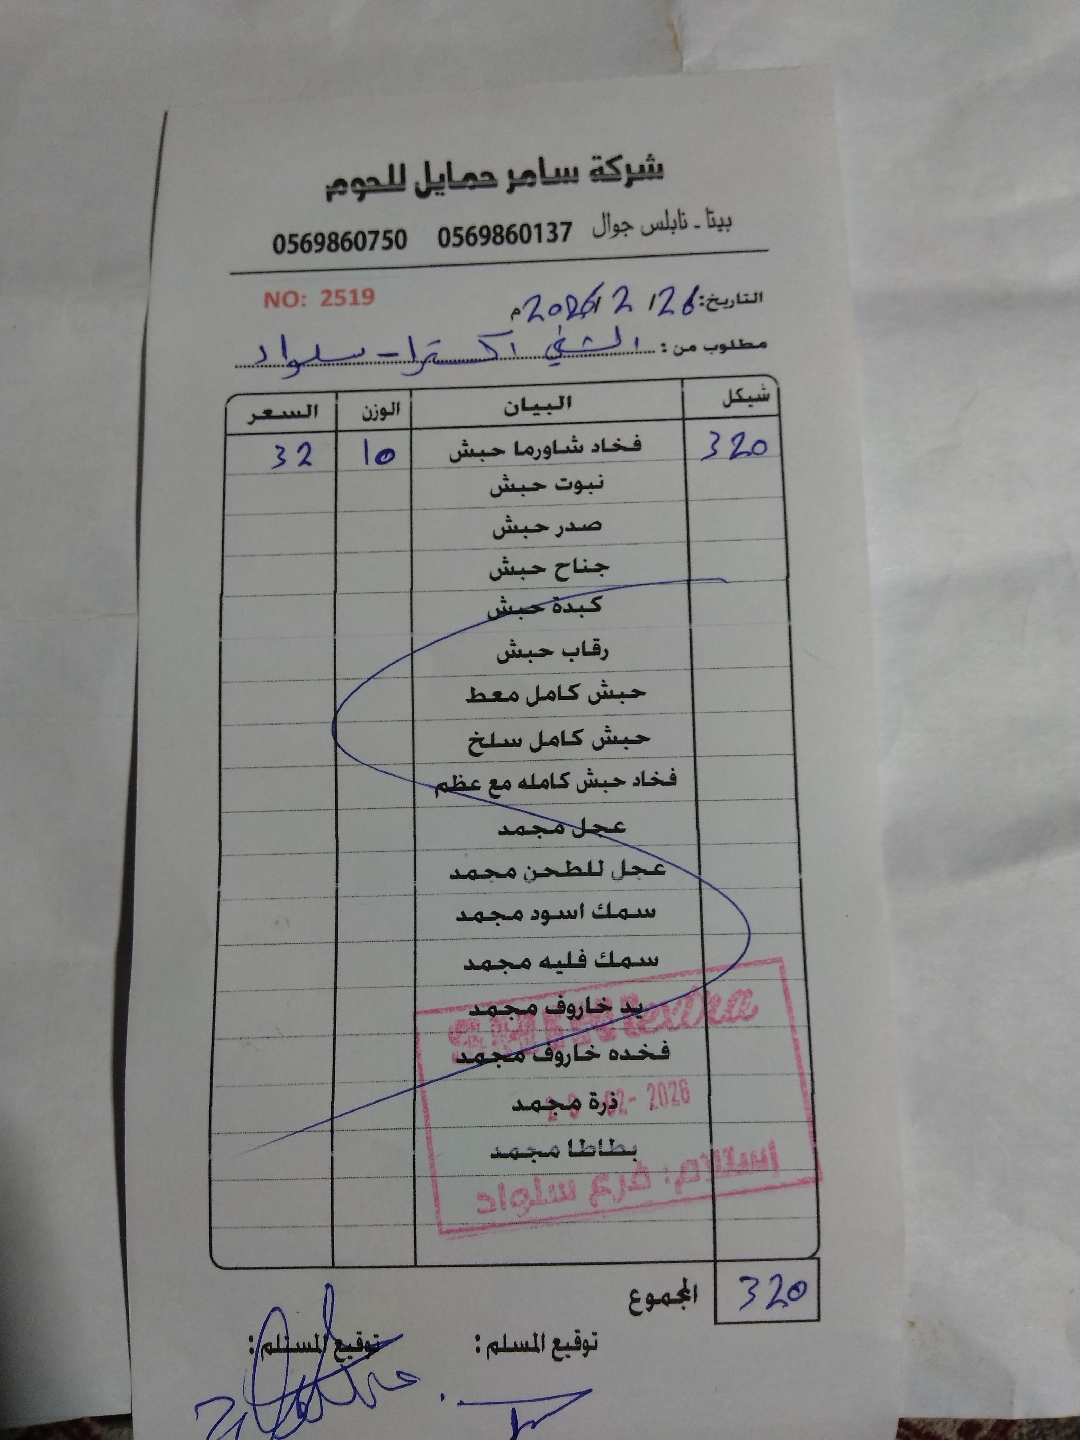 شركة سامر حمايل للحوم
بيتا - نابلس جوال 0569860137 0569860750
NO: 2519
التاريخ: 26 / 2 / 2026م
مطلوب من: الشفي اكسترا - سلواد
شيكل البيان الوزن السعر
320 فخاد شاورما حبش 10 32
نبوت حبش
صدر حبش
جناح حبش
كبدة حبش
رقاب حبش
حبش كامل معط
حبش كامل سلخ
فخاد حبش كامله مع عظم
عجل مجمد
عجل للطحن مجمد
سمك اسود مجمد
سمك فليه مجمد
يد خاروف مجمد
فخده خاروف مجمد
ذرة مجمد
بطاطا مجمد
extra
02- 2026
استلام: فرع سلواد
المجموع 320
توقيع المسلم : توقيع المستلم :